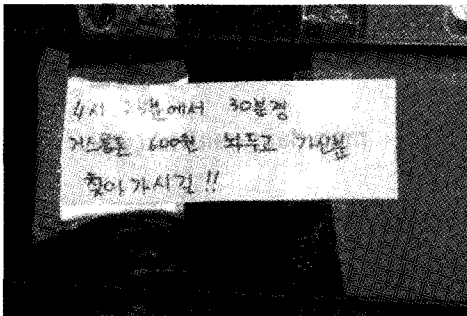 4시 에서 30분경
거스름돈 600원 놔두고 가신분
찾아가시길!!